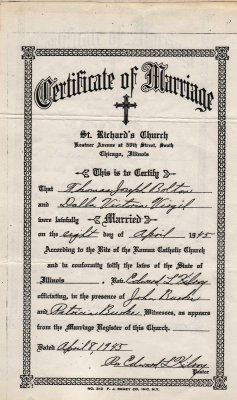 Certificate of Marriage
St. Richard's Church
Kostner Avenue at 50th Street, South
Chicago, Illinois
This is to Certify
That Thomas Joseph Bolton
and Dalla Victoria Virgil
were lawfully Married
on the eight day of April 1945
According to the Rite of the Roman Catholic Church
and in conformity with the laws of the State of
Illinois, Rev. Edward L.
officiating, in the presence of John Burke
and Patricia Burke Witnesses, as appears
from the Marriage Register of this Church.
Dated April 8, 1945
Rev Edward L.
Pastor
NO. 212 F. J. INC. N.Y.